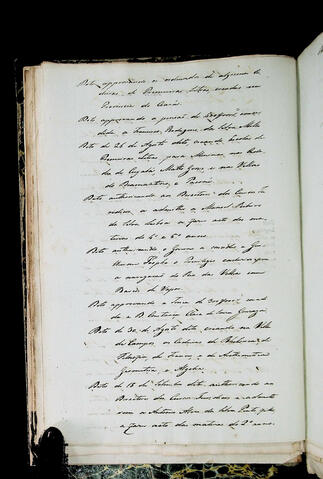 Dito approvando o ordenado de algumas Ca
deiras de Primeiras Letras creadas na
Provincia do Ceará.
Dito approvando a pensão de conce
dida a Francisco Rodrigues da Silva Mello
Dito de 26 de Agosto dito, creando Escolas de
Primeiras Letras para Meninas, nas Cida
des de Cuyabá, Matto Grosso, e nas Villas
de Diamantino, e Poconé.
Dito authorisando ao Director do Curso Ju
ridico, a admittir a Manoel Ribeiro
da Silva Lisboa a fazer acto das ma
terias do 4º e 5º annos.
Dito authorisando o Governo a conceder a
Privilegio exclusivo para
a navegação do Rio das Velhas com
Barcos de Vapor.
Dito approvando a Tença de conce
dida a D. Antonia Clara de
Dito de 30 de Agosto dito, creando na Villa
de Campos, as Cadeiras de Rhetorica, de
Filosofia, de Francez, e de Arithmetica
Geometria, e Algebra.
Dito de 15 de Setembro dito, authorisando ao
Director do Curso Juridico a
com o Antonio Alves da Silva Pinto para
fazer acto das materias do 2º anno.